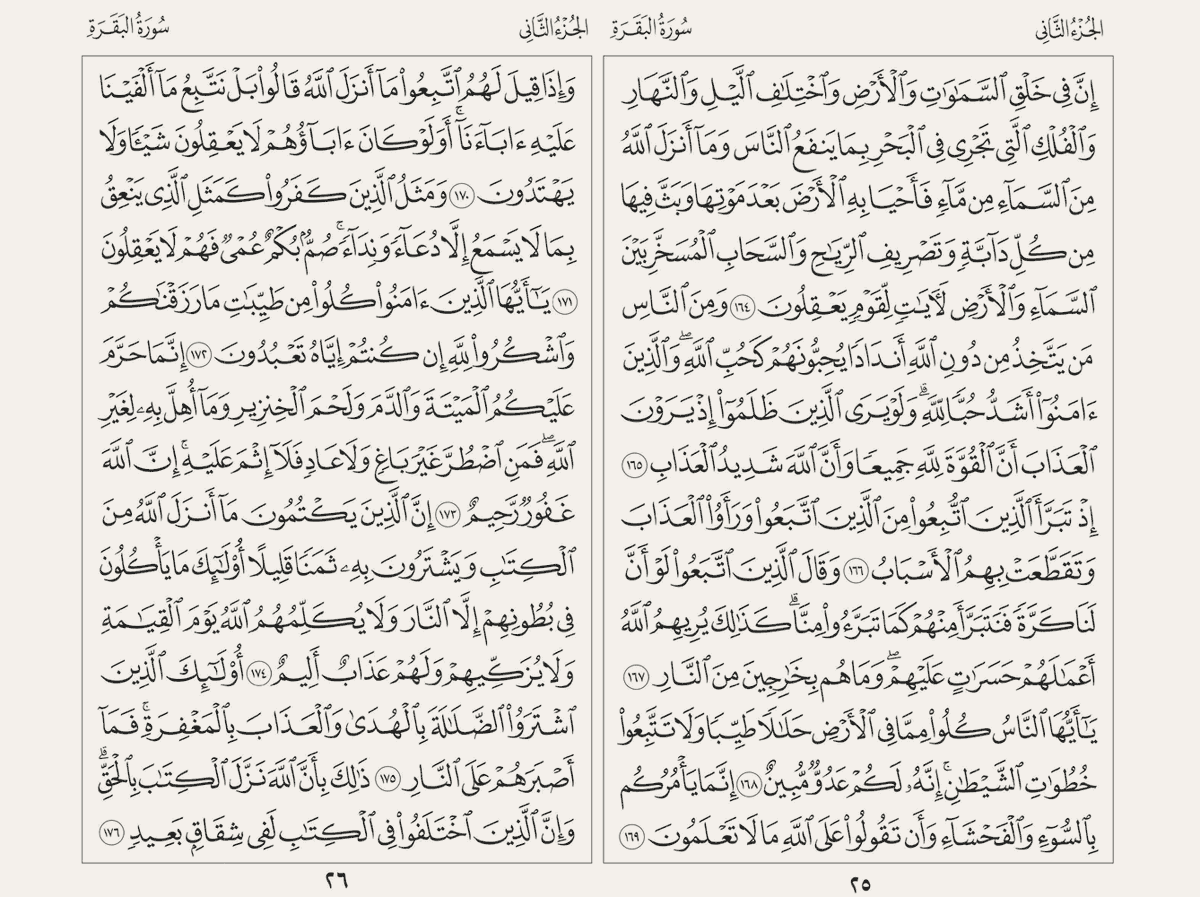 الجُزْءُ الثَّانِي
سُورَةُ البَقَرَةِ
إِنَّ فِي خَلْقِ ٱلسَّمَٰوَٰتِ وَٱلْأَرْضِ وَٱخْتِلَٰفِ ٱلَّيْلِ وَٱلنَّهَارِ
وَٱلْفُلْكِ ٱلَّتِي تَجْرِي فِي ٱلْبَحْرِ بِمَا يَنفَعُ ٱلنَّاسَ وَمَآ أَنزَلَ ٱللَّهُ
مِنَ ٱلسَّمَآءِ مِن مَّآءٍ فَأَحْيَا بِهِ ٱلْأَرْضَ بَعْدَ مَوْتِهَا وَبَثَّ فِيهَا
مِن كُلِّ دَآبَّةٍ وَتَصْرِيفِ ٱلرِّيَٰحِ وَٱلسَّحَابِ ٱلْمُسَخَّرِ بَيْنَ
ٱلسَّمَآءِ وَٱلْأَرْضِ لَأٓيَٰتٍ لِّقَوْمٍ يَعْقِلُونَ ١٦٤ وَمِنَ ٱلنَّاسِ
مَن يَتَّخِذُ مِن دُونِ ٱللَّهِ أَندَادًا يُحِبُّونَهُمْ كَحُبِّ ٱللَّهِۖ وَٱلَّذِينَ
ءَامَنُوٓا۟ أَشَدُّ حُبًّا لِّلَّهِۗ وَلَوْ يَرَى ٱلَّذِينَ ظَلَمُوٓا۟ إِذْ يَرَوْنَ
ٱلْعَذَابَ أَنَّ ٱلْقُوَّةَ لِلَّهِ جَمِيعًا وَأَنَّ ٱللَّهَ شَدِيدُ ٱلْعَذَابِ ١٦٥
إِذْ تَبَرَّأَ ٱلَّذِينَ ٱتُّبِعُوا۟ مِنَ ٱلَّذِينَ ٱتَّبَعُوا۟ وَرَأَوُا۟ ٱلْعَذَابَ
وَتَقَطَّعَتْ بِهِمُ ٱلْأَسْبَابُ ١٦٦ وَقَالَ ٱلَّذِينَ ٱتَّبَعُوا۟ لَوْ أَنَّ
لَنَا كَرَّةً فَنَتَبَرَّأَ مِنْهُمْ كَمَا تَبَرَّءُوا۟ مِنَّاۗ كَذَٰلِكَ يُرِيهِمُ ٱللَّهُ
أَعْمَٰلَهُمْ حَسَرَٰتٍ عَلَيْهِمْۖ وَمَا هُم بِخَٰرِجِينَ مِنَ ٱلنَّارِ ١٦٧
يَٰٓأَيُّهَا ٱلنَّاسُ كُلُوا۟ مِمَّا فِي ٱلْأَرْضِ حَلَٰلًا طَيِّبًا وَلَا تَتَّبِعُوا۟
خُطُوَٰتِ ٱلشَّيْطَٰنِۚ إِنَّهُۥ لَكُمْ عَدُوٌّ مُّبِينٌ ١٦٨ إِنَّمَا يَأْمُرُكُم
بِٱلسُّوٓءِ وَٱلْفَحْشَآءِ وَأَن تَقُولُوا۟ عَلَى ٱللَّهِ مَا لَا تَعْلَمُونَ ١٦٩
٢٥
الجُزْءُ الثَّانِي
سُورَةُ البَقَرَةِ
وَإِذَا قِيلَ لَهُمُ ٱتَّبِعُوا۟ مَآ أَنزَلَ ٱللَّهُ قَالُوا۟ بَلْ نَتَّبِعُ مَآ أَلْفَيْنَا
عَلَيْهِ ءَابَآءَنَآۚ أَوَلَوْ كَانَ ءَابَآؤُهُمْ لَا يَعْقِلُونَ شَيْـًٔا وَلَا
يَهْتَدُونَ ١٧٠ وَمَثَلُ ٱلَّذِينَ كَفَرُوا۟ كَمَثَلِ ٱلَّذِي يَنْعِقُ
بِمَا لَا يَسْمَعُ إِلَّا دُعَآءً وَنِدَآءًۚ صُمٌّۢ بُكْمٌ عُمْيٌ فَهُمْ لَا يَعْقِلُونَ
١٧١ يَٰٓأَيُّهَا ٱلَّذِينَ ءَامَنُوا۟ كُلُوا۟ مِن طَيِّبَٰتِ مَا رَزَقْنَٰكُمْ
وَٱشْكُرُوا۟ لِلَّهِ إِن كُنتُمْ إِيَّاهُ تَعْبُدُونَ ١٧٢ إِنَّمَا حَرَّمَ
عَلَيْكُمُ ٱلْمَيْتَةَ وَٱلدَّمَ وَلَحْمَ ٱلْخِنزِيرِ وَمَآ أُهِلَّ بِهِۦ لِغَيْرِ
ٱللَّهِۖ فَمَنِ ٱضْطُرَّ غَيْرَ بَاغٍ وَلَا عَادٍ فَلَآ إِثْمَ عَلَيْهِۚ إِنَّ ٱللَّهَ
غَفُورٌ رَّحِيمٌ ١٧٣ إِنَّ ٱلَّذِينَ يَكْتُمُونَ مَآ أَنزَلَ ٱللَّهُ مِنَ
ٱلْكِتَٰبِ وَيَشْتَرُونَ بِهِۦ ثَمَنًا قَلِيلًا أُو۟لَٰٓئِكَ مَا يَأْكُلُونَ
فِي بُطُونِهِمْ إِلَّا ٱلنَّارَ وَلَا يُكَلِّمُهُمُ ٱللَّهُ يَوْمَ ٱلْقِيَٰمَةِ
وَلَا يُزَكِّيهِمْ وَلَهُمْ عَذَابٌ أَلِيمٌ ١٧٤ أُو۟لَٰٓئِكَ ٱلَّذِينَ
ٱشْتَرَوُا۟ ٱلضَّلَٰلَةَ بِٱلْهُدَىٰ وَٱلْعَذَابَ بِٱلْمَغْفِرَةِۚ فَمَآ
أَصْبَرَهُمْ عَلَى ٱلنَّارِ ١٧٥ ذَٰلِكَ بِأَنَّ ٱللَّهَ نَزَّلَ ٱلْكِتَٰبَ بِٱلْحَقِّۗ
وَإِنَّ ٱلَّذِينَ ٱخْتَلَفُوا۟ فِي ٱلْكِتَٰبِ لَفِي شِقَاقٍۭ بَعِيدٍ ١٧٦
٢٦